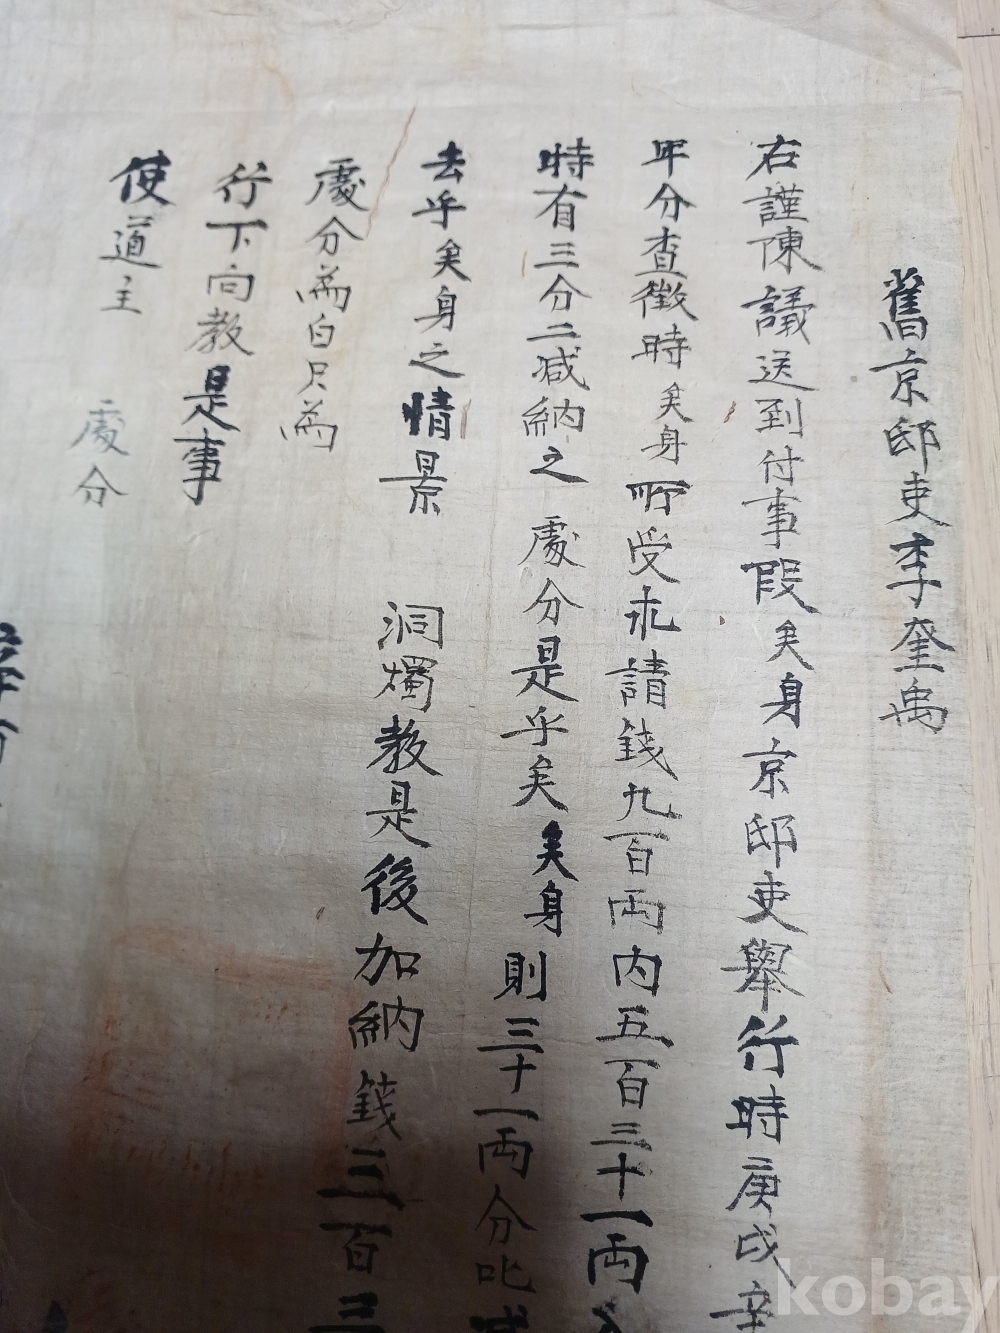 舊京邸吏李奎禹
右謹陳議送到付事段矣身京邸吏擧行時庚戌辛
年分査徵時矣身所受永請錢九百両內五百三十一両
時有三分二減納之處分是乎矣矣身則三十一両分叱減
去乎矣身之情景洞燭敎是後加納錢三百三
處分爲白只爲
行下向敎是事
使道主處分
kobay